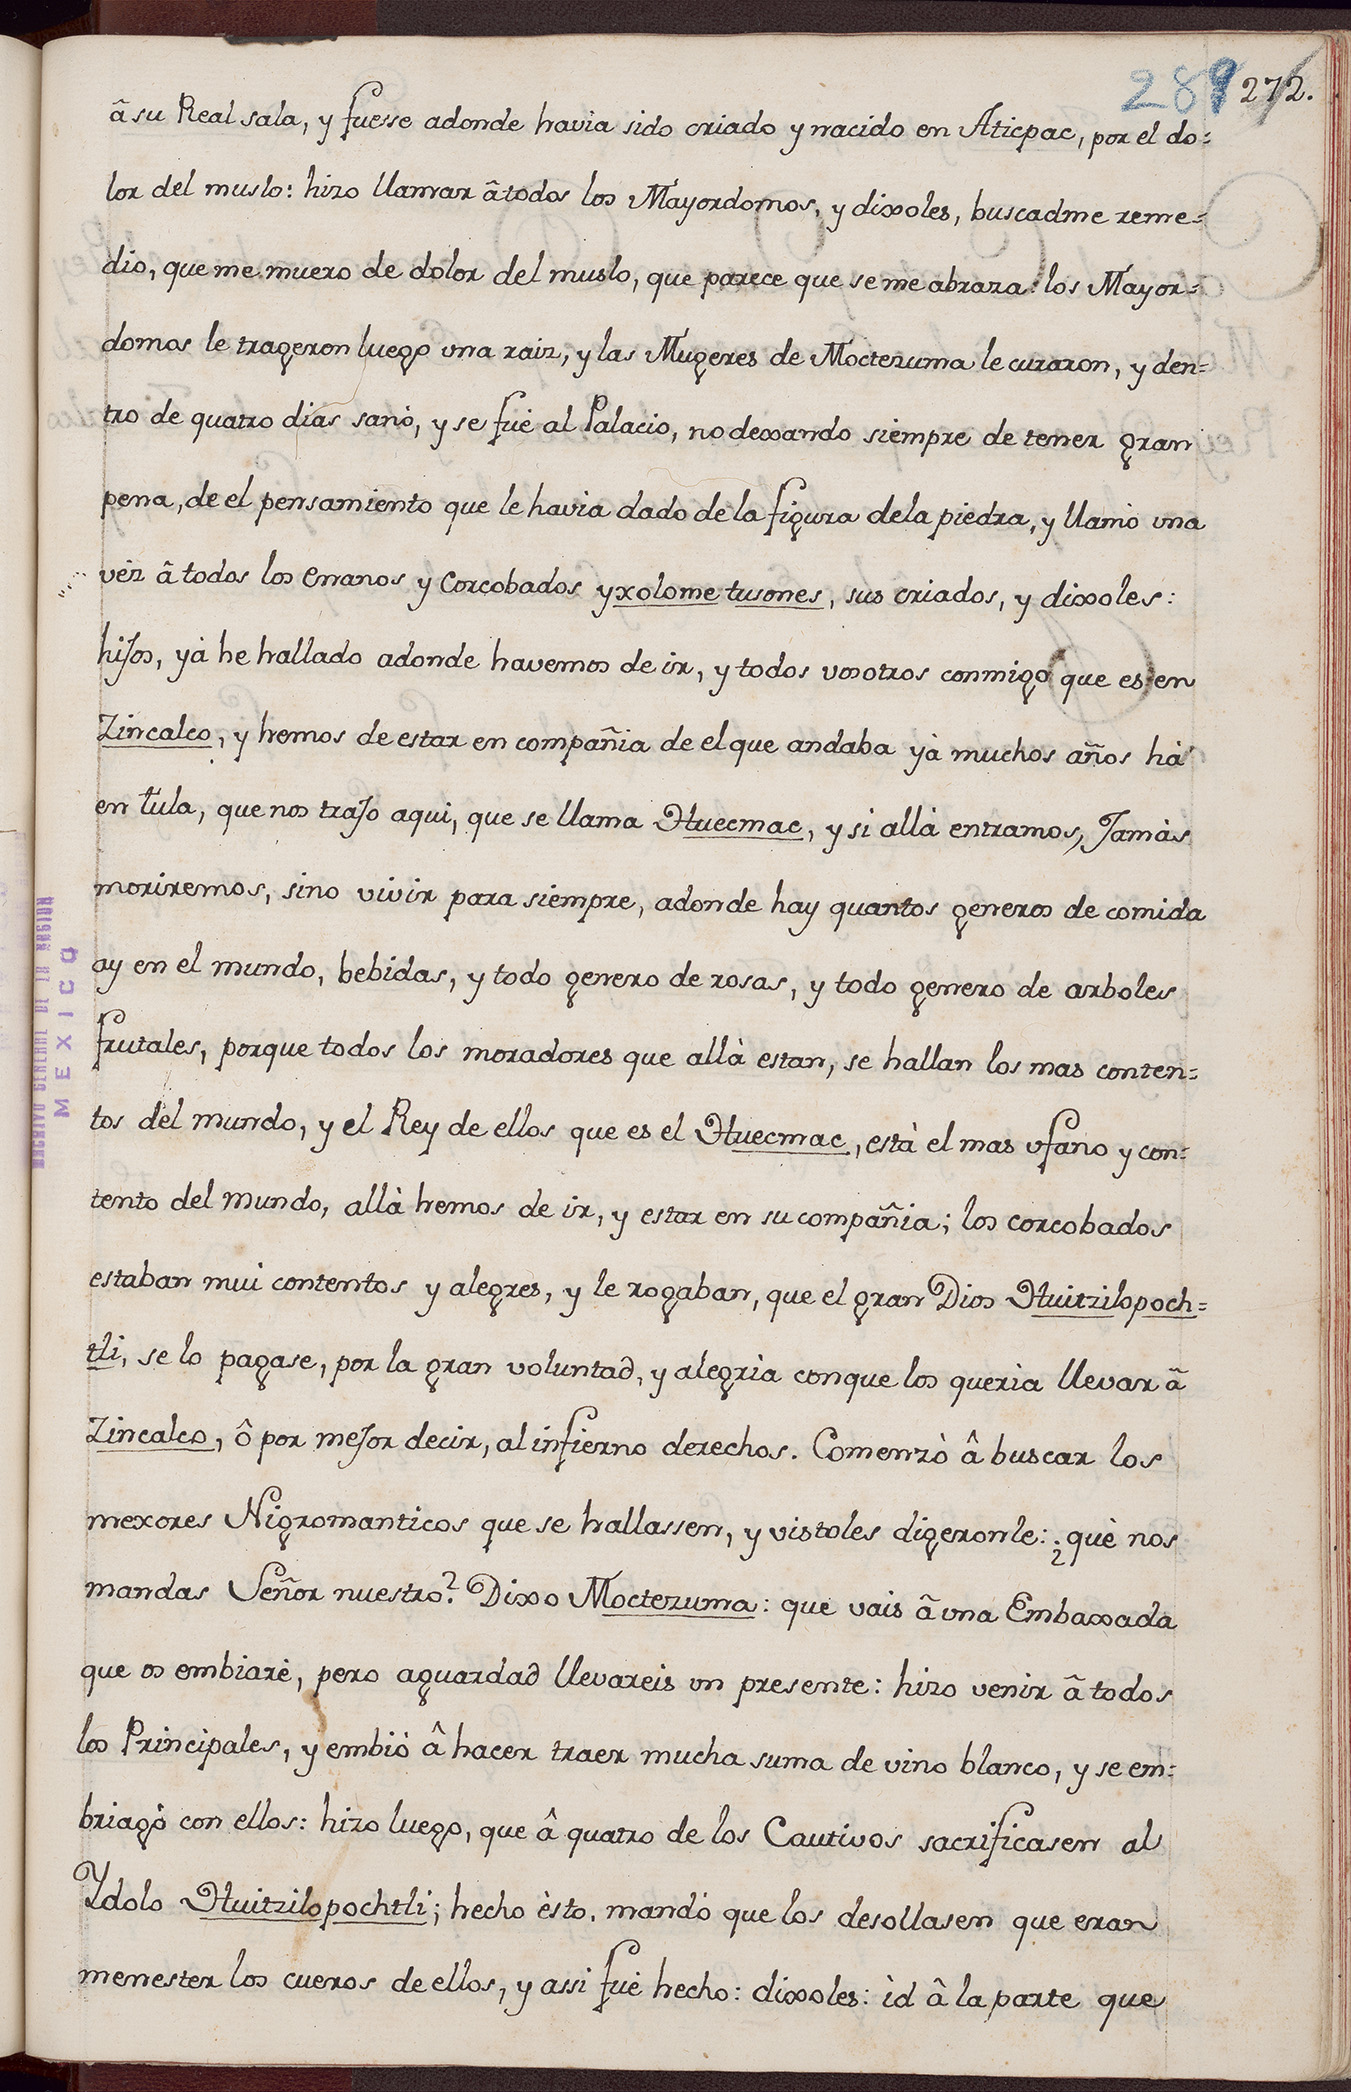 289 272.
â su Real sala, y fuesse adonde havia sido criado y nacido en Aticpac, por el do=
lor del muslo: hizo llamar â todos los Mayordomos, y dixoles, buscadme reme=
dio, que me muero de dolor del muslo, que parece que se me abraza: los Mayor=
domos le trageron luego una raiz, y las Mugeres de Moctezuma le curaron, y den=
tro de quatro dias sanò, y se fuè al Palacio, no dexando siempre de tener gran
pena, de el pensamiento que le havia dado de la figura dela piedra, y llamò una
vèz â todos los enanos y Corcobados yxolome tusones, sus criados, y dixoles:
hijos, yà he hallado adonde havemos de ir, y todos vosotros conmigo que es en
Zincalco, y hemos de estar en compañia de el que andaba yà muchos años hà
en tula, que nos trajo aqui, que se llama Huecmac, y si allà entramos, Jamàs
moriremos, sino vivir para siempre, adonde hay quantos generos de comida
ay en el mundo, bebidas, y todo genero de rosas, y todo genero de arboles
frutales, porque todos los moradores que allà estan, se hallan los mas conten=
tos del mundo, y el Rey de ellos que es el Huecmac, està el mas vfano y con=
tento del mundo, allà hemos de ir, y estar en su compañia; los corcobados
estaban mui contentos y alegres, y le rogaban, que el gran Dios Huitzilopoch=
tli, se lo pagase, por la gran voluntad, y alegrìa conque los querìa llevar â
Zincalco, ô por mejor decir, al infierno derechos. Comenzò â buscar los
mexores Nigromanticos que se hallassen, y vistoles digeronle: ¿què nos
mandas Señor nuestro? Dixo Moctezuma: que vais â una Embaxada
que os embiarè, pero aguardad llevareis un presente: hizo venir â todos
los Principales, y embiò â hacer traer mucha suma de vino blanco, y se em=
briagò con ellos: hizo luego, que â quatro de los Cautivos sacrificasen al
Ydolo Huitzilopochtli; hecho èsto, mandò que los desollasen que eran
menester los cueros de ellos, y assi fuè hecho: dixoles: ìd â la parte que
ARCHIVO GENERAL DE LA NACION
MEXICO